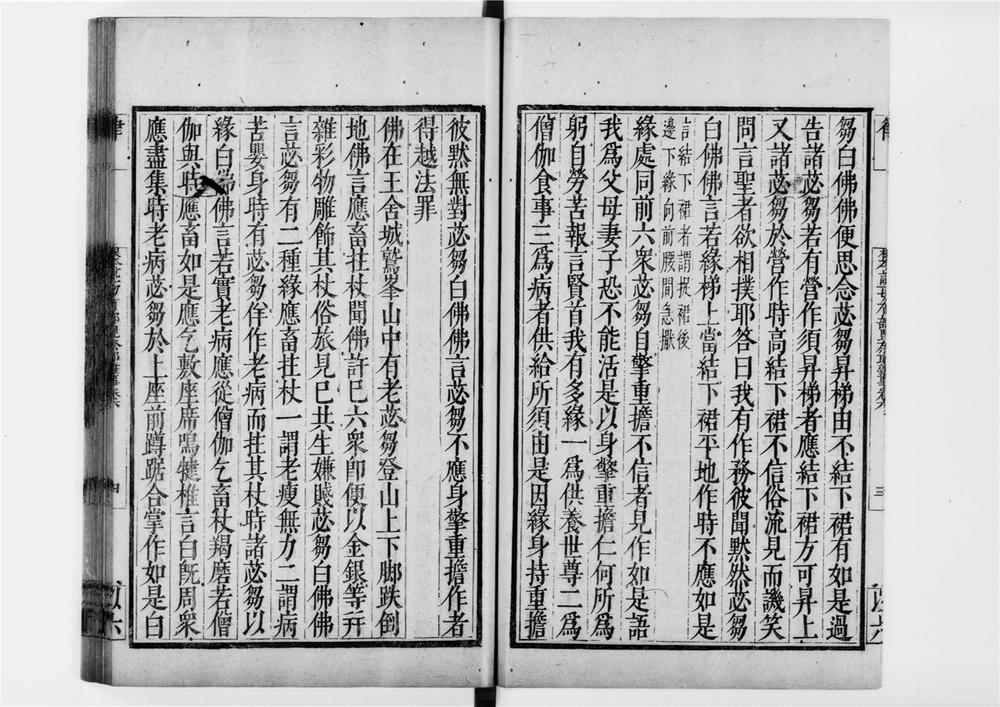 芻白佛佛便思念苾芻昇梯由不結下裙有如是過
告諸苾芻若有營作須昇梯者應結下裙方可昇上
又諸苾芻於營作時高結下裙不信俗流見而譏笑
問言聖者欲相撲耶答曰我有作務彼聞默然苾芻
白佛佛言若緣梯上當結下裙平地作時不應如是
言結下裙者謂捉裙後
邊下緣向前腰間急擫
緣處同前六衆苾芻自擎重擔不信者見作如是語
我爲父母妻子恐不能活是以身擎重擔仁何所爲
躬自勞苦報言賢首我有多緣一爲供養世尊二爲
僧伽食事三爲病者供給所須由是因緣身持重擔
彼默無對苾芻白佛佛言苾芻不應身擎重擔作者
得越法罪
佛在王舍城鷲峯山中有老苾芻登山上下脚跌倒
地佛言應畜拄杖聞佛許已六衆即便以金銀等幷
雜彩物雕飾其杖俗旅見已共生嫌賤苾芻白佛佛
言苾芻有二種緣應畜拄杖一謂老瘦無力二謂病
苦嬰身時有苾芻佯作老病而拄其杖時諸苾芻以
緣白佛佛言若實老病應從僧伽乞畜杖羯磨若僧
伽與時應畜如是應乞敷座席鳴犍椎言白旣周衆
應盡集時老病苾芻於上座前蹲踞合掌作如是白
律
三
律
四